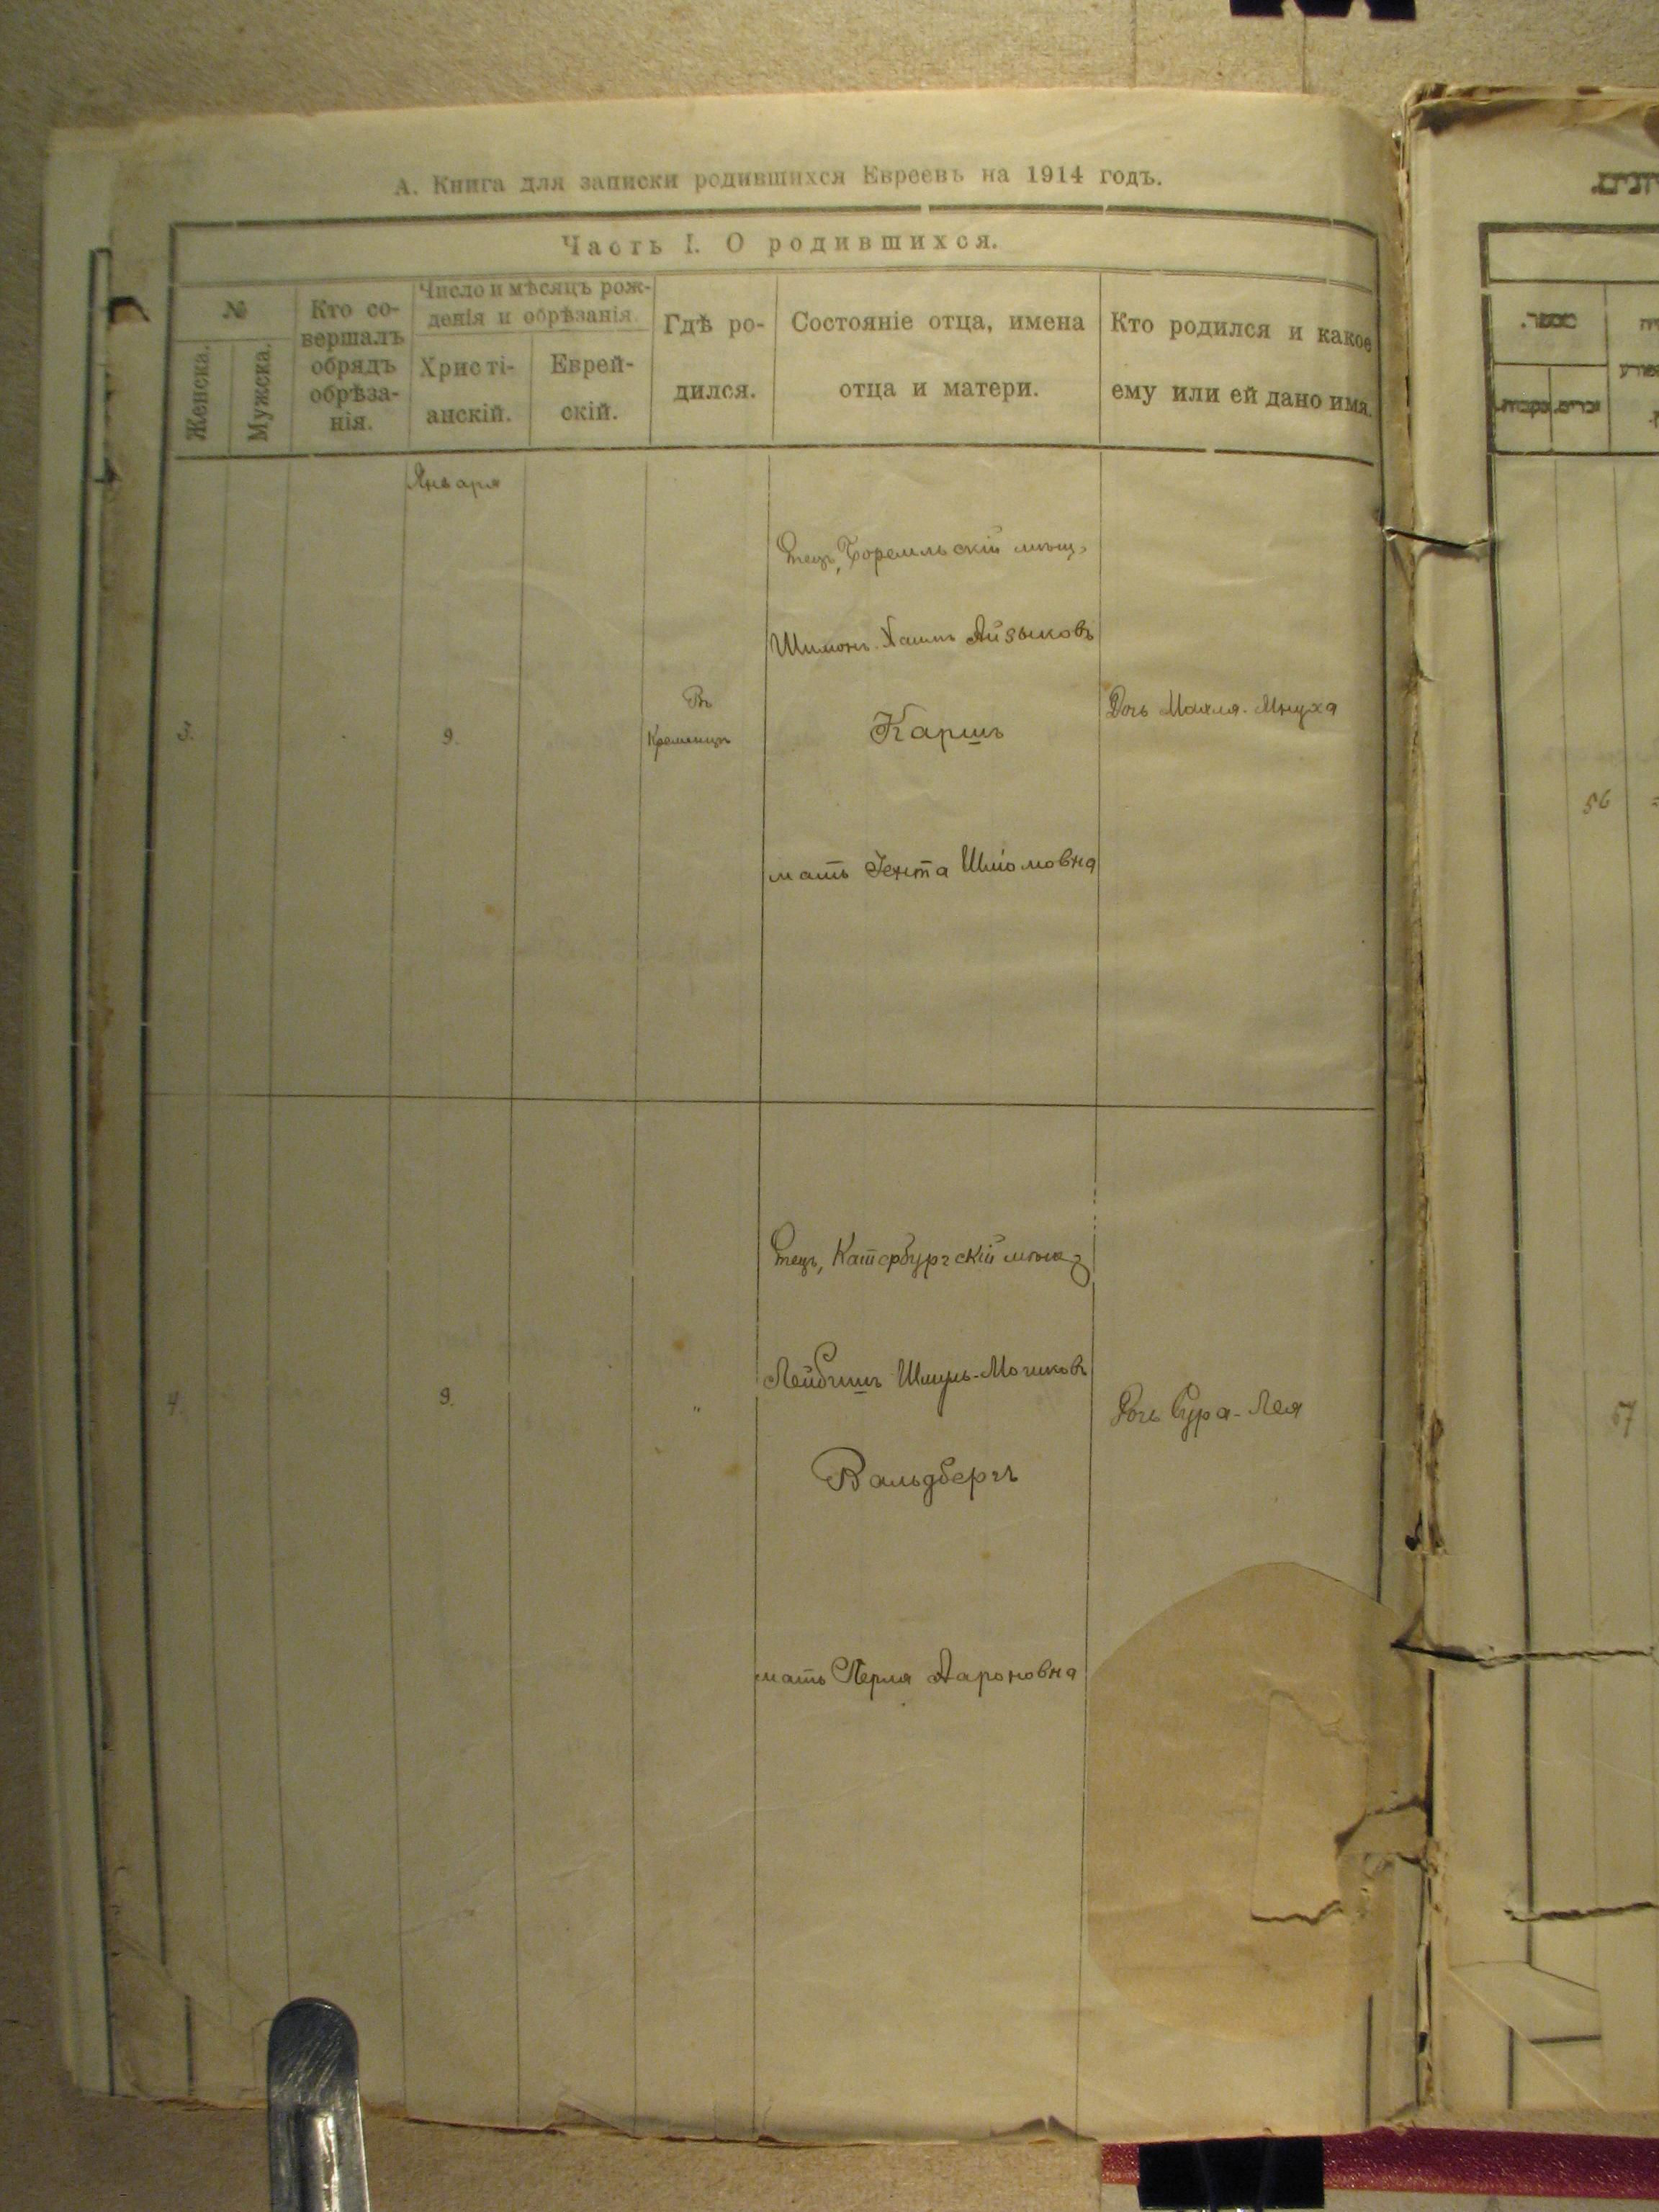 А. Книга для записки родившихся Евреевъ на 1914 годъ.
Часть I. О родившихся.
№
Женска.
Мужска.
Кто со-
вершалъ
обрядъ
обрѣза-
нія.
Число и мѣсяцъ рож-
денія и обрѣзанія.
Христі-
анскій.
Еврей-
скій.
Гдѣ ро-
дился.
Состояніе отца, имена
отца и матери.
Кто родился и какое
ему или ей дано имя.
Января
3.
9.
Въ
Кременцѣ
Отецъ, Боремльскій мѣщ.
Шимонъ-Хаимъ Айзыковъ
Каршъ
мать Гента Шліомовна
Дочь Махля-Мнуха
4.
9.
"
Отецъ, Катербургскій мѣщ.
Лейбишъ Шмуль-Мошковъ
Вальдбергъ
мать Перля Аароновна
Дочь Сура-Лея
מספר.
זכרים.
נקבות.
56
57